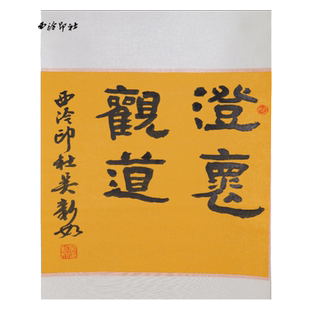 西泠印社
澄怀
觀道
西泠印社吴新如